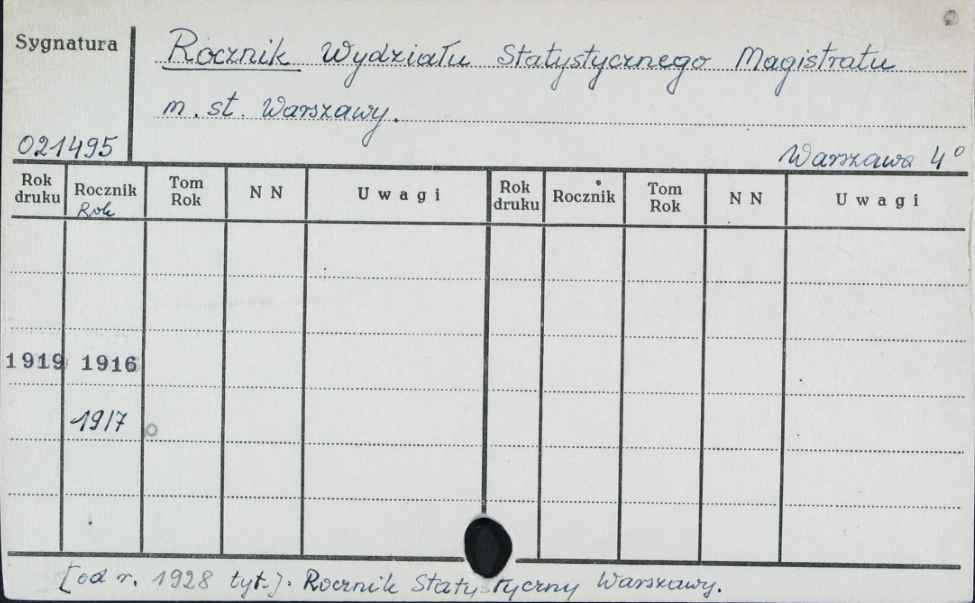 Sygnatura
Rocznik Wydziału Statystycznego Magistratu
m. st. Warszawy.
021495
Warszawa 4°
Rok druku Rocznik Tom Rok N N Uwagi Rok druku Rocznik Tom Rok N N Uwagi
Rok
1919 1916
1917
[od r. 1928 tyt.]: Rocznik Statystyczny Warszawy.